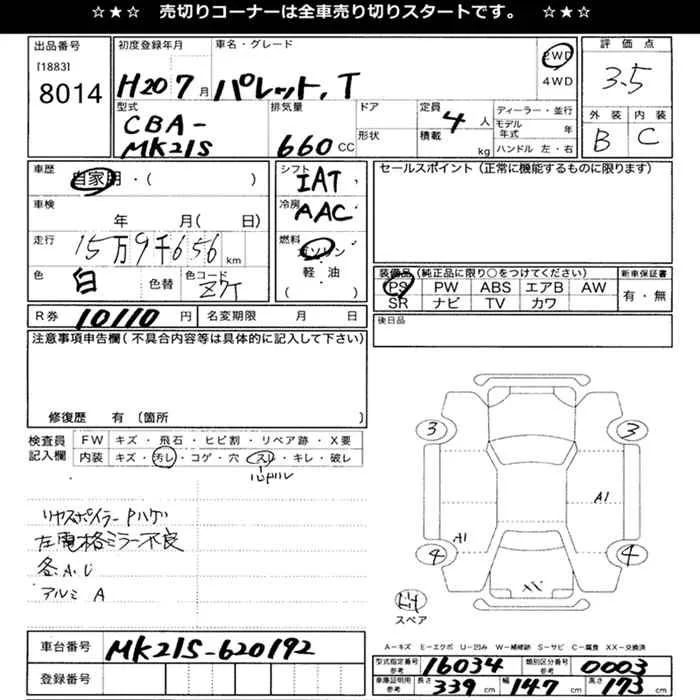 ☆★☆ 売切りコーナーは全車売り切りスタートです。 ☆★☆
出品番号
[1883]
8014
初度登録年月
H20 7月
車名・グレード
パレット, T
2WD
4WD
評価点
3.5
外装 内装
B C
型式
CBA-
MK21S
排気量
660 CC
ドア
形状
定員
4人
積載
kg
ディーラー・並行
モデル年式 年
ハンドル 左・右
車歴
自家用・( )
車検
年 月( 日)
走行
15万9千656 km
色
白
色替
色コード
Z7T
シフト
IAT
冷房
AAC
燃料
ガソリン
軽・油
( )
セールスポイント(正常に機能するものに限ります)
装備品(純正品に限り○をつけてください)
PS PW ABS エアB AW
SR ナビ TV カワ
新車保証書
有・無
後日品
R券 10110 円
名変期限 月 日
注意事項申告欄(不具合内容等は具体的に記入して下さい)
修復歴 有〔箇所 〕
検査員
記入欄
FW キズ・飛石・ヒビ割・リペア跡・X要
内装 キズ・汚レ・コゲ・穴・スレ・キレ・破レ
リヤスポイラー Pハゲ
左電格ミラー不良
各A.U
アルミ A
3
3
A1
A1
4
4
XV
スペア
A-キズ E-エクボ U-凹み W-補修跡 S-サビ C-腐食 XX-交換済
車台番号 MK21S-620192
登録番号
型式指定番号
参考
16034
類別区分番号
参考
0003
車庫証明用
参考
長さ 339 cm 幅 147 cm 高さ 173 cm